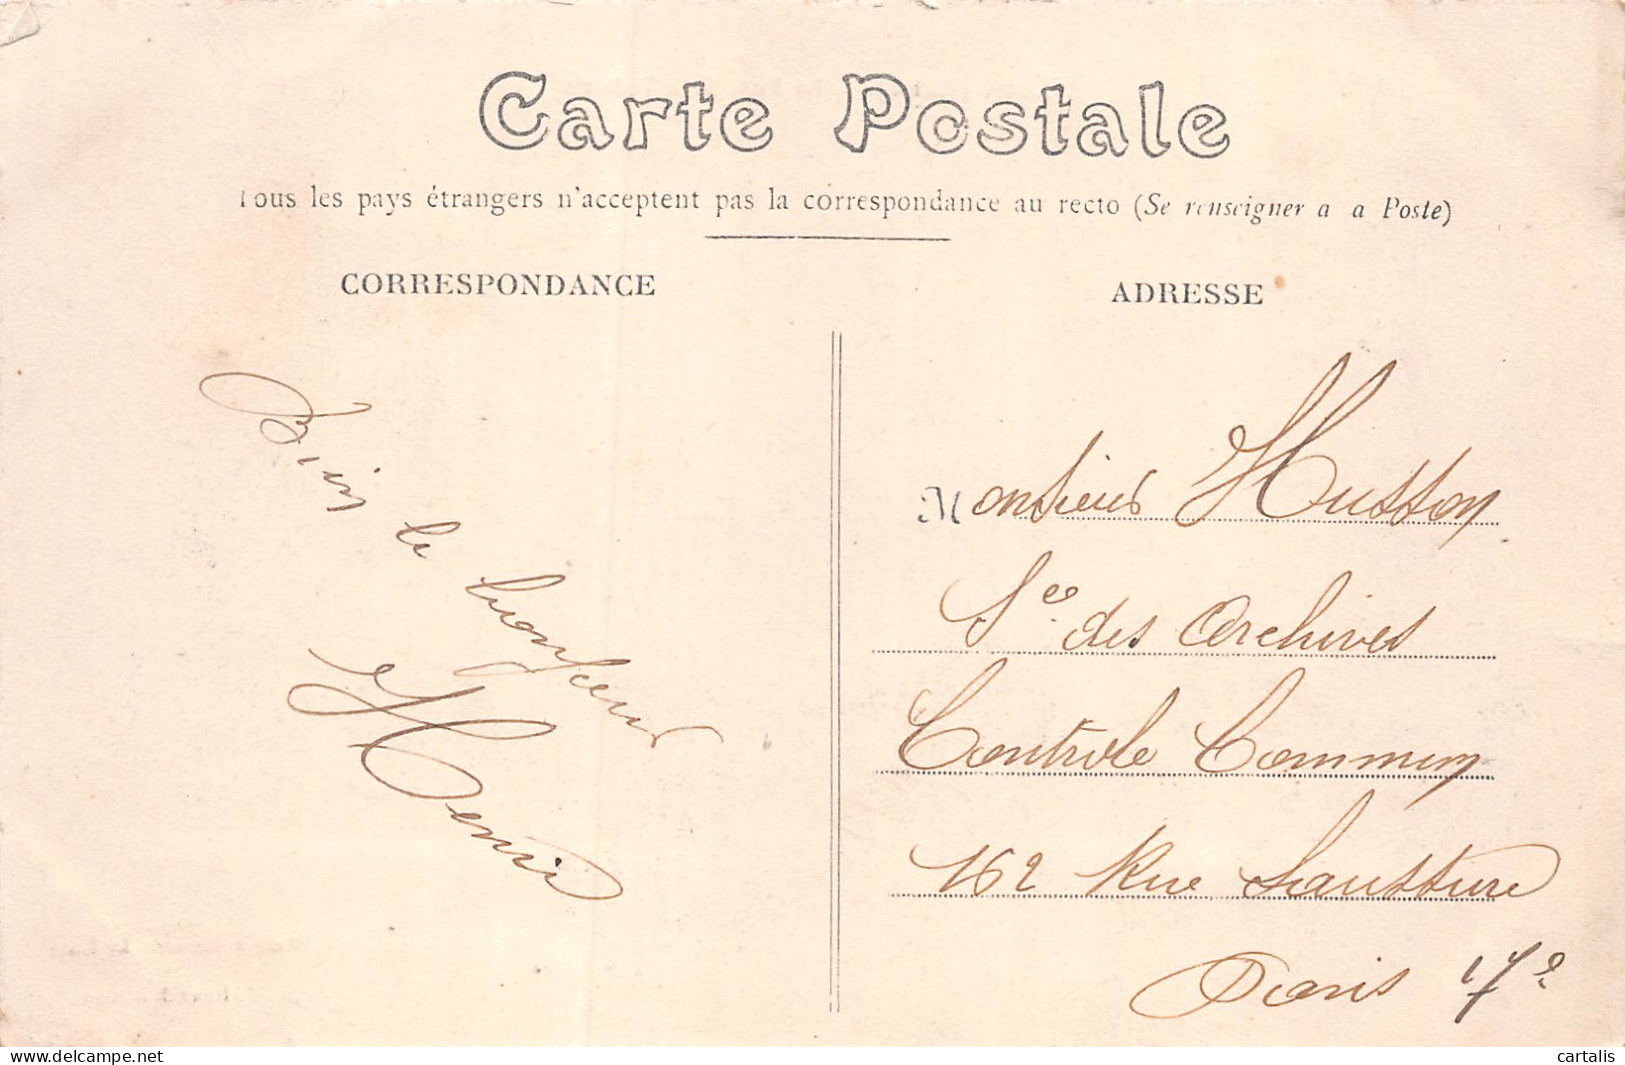 Carte Postale
Tous les pays étrangers n'acceptent pas la correspondance au recto (Se renseigner a a Poste)
CORRESPONDANCE
Bien le bonjour
Henri
ADRESSE
Monsieur Husson
Sce des Archives
Controle Commun
162 Rue Saussure
Paris 17e
www.delcampe.net
cartalis